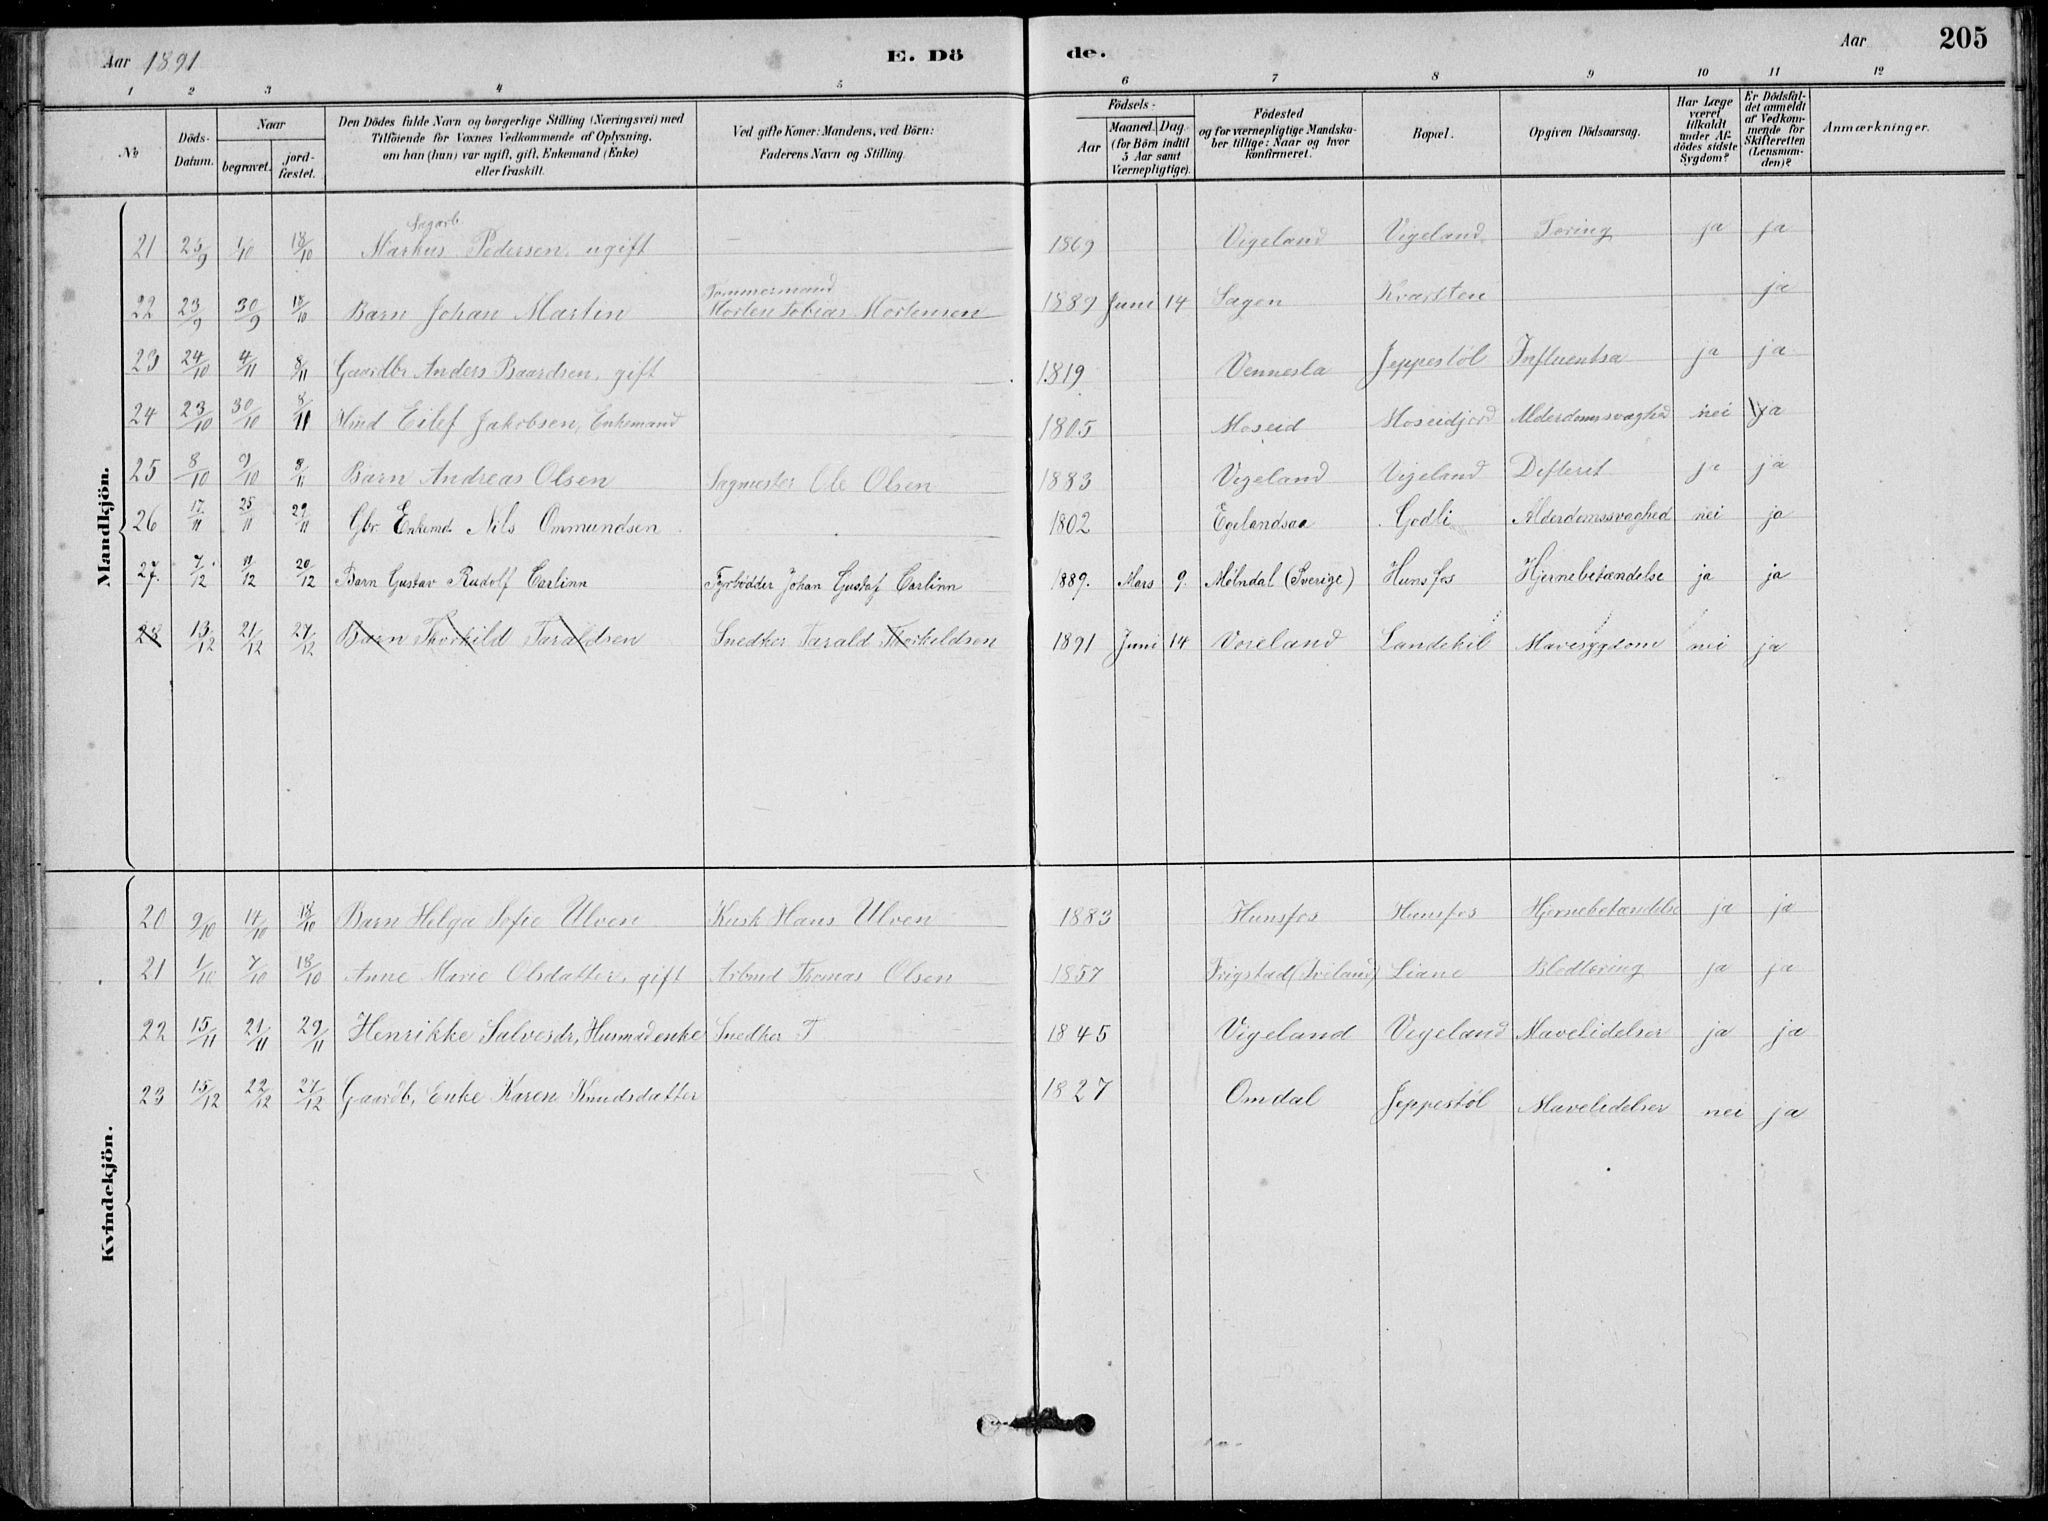 Aar 1891 E. Dö de. Aar 205
1 2 3 4 5 6 7 8 9 10 11 12
No
Döds-Datum.
Naar
begravet.
jordfæstet.
Den Dödes fulde Navn og borgerlige Stilling (Næringsvei) med
Tilföiende for Voxnes Vedkommende af Oplysning,
om han (hun) var ugift, gift, Enkemand (Enke)
eller fraskilt.
Ved gifte Koner: Mandens, ved Börn:
Faderens Navn og Stilling.
Födsels-
Aar
Maaned. Dag.
(for Börn indtil
5 Aar samt
Værnepligtige).
Födested
og for værnepligtige Mandskaber
tillige: Naar og hvor
konfirmeret.
Bopæl.
Opgiven Dödsaarsag.
Har Læge
været
tilkaldt
under Afdödes
sidste
Sygdom?
Er Dödsfaldet
anmeldt
af Vedkommende
for
Skifteretten
(Lensmanden)?
Anmærkninger.
Mandkjön.
Sagarb
21 25/9 1/10 18/10 Markus Pedersen, ugift 1869 Vigeland Vigeland Tæring ja ja
Tømmermand
22 23/9 30/9 18/10 Barn Johan Martin Morten Tobias Mortensen 1889 Juni 14 Sagen Kvarsten ja
23 24/10 4/11 8/11 Gaardbr Anders Baardsen, gift 1819 Vennesla Jeppestøl Influentsa ja ja
24 23/10 30/10 8/11 Eilef Jakobsen, Enkemand 1805 Moseid Moseidjord Alderdomssvaghed nei ja
25 8/10 9/10 8/11 Barn Andreas Olsen Sagmester Ole Olsen 1883 Vigeland Vigeland Difterit ja ja
26 17/11 25/11 29/11 Gbr. Enkemd. Nils Ommundsen 1802 Egelandsaa Godli Alderdomssvaghed nei ja
27. 7/12 11/12 20/12 Barn Gustav Rudolf Carlinn Fyrbödder Johan Gustaf Carlinn 1889. Mars 9. Mölndal (Sverige) Hunsfos Hjernebetændelse ja ja
28 13/12 21/12 27/12 Barn Thorkild Taraldsen Snedker Tarald Thorkeldsen 1891 Juni 14 Voreland Landekil Mavesygdom nei ja
Kvindekjön.
20 9/10 14/10 18/10 Barn Helga Sofie Ulven Kusk Hans Ulven 1883 Hunsfos Hunsfos Hjernebetændelse ja ja
21 1/10 7/10 18/10 Anne Marie Olsdatter, gift Arbmd Thomas Olsen 1857 Frigstad (Iveland) Liane Blodtæring ja ja
22 15/11 21/11 29/11 Henrikke Salvesdr, Husmdenke Snedker T 1845 Vigeland Vigeland Mavelidelser ja ja
23 15/12 22/12 27/12 Gaardb, Enke Karen Knudsdatter 1827 Omdal Jeppestøl Mavelidelser nei ja